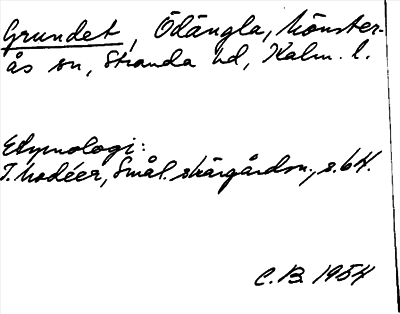 Grundet, Ödängla, Mönster-
ås sn, Stranda hd, Kalm. l.
Etymologi:
I. Modéer, Smål. skärgårdsn., s. 64.
C.B. 1954